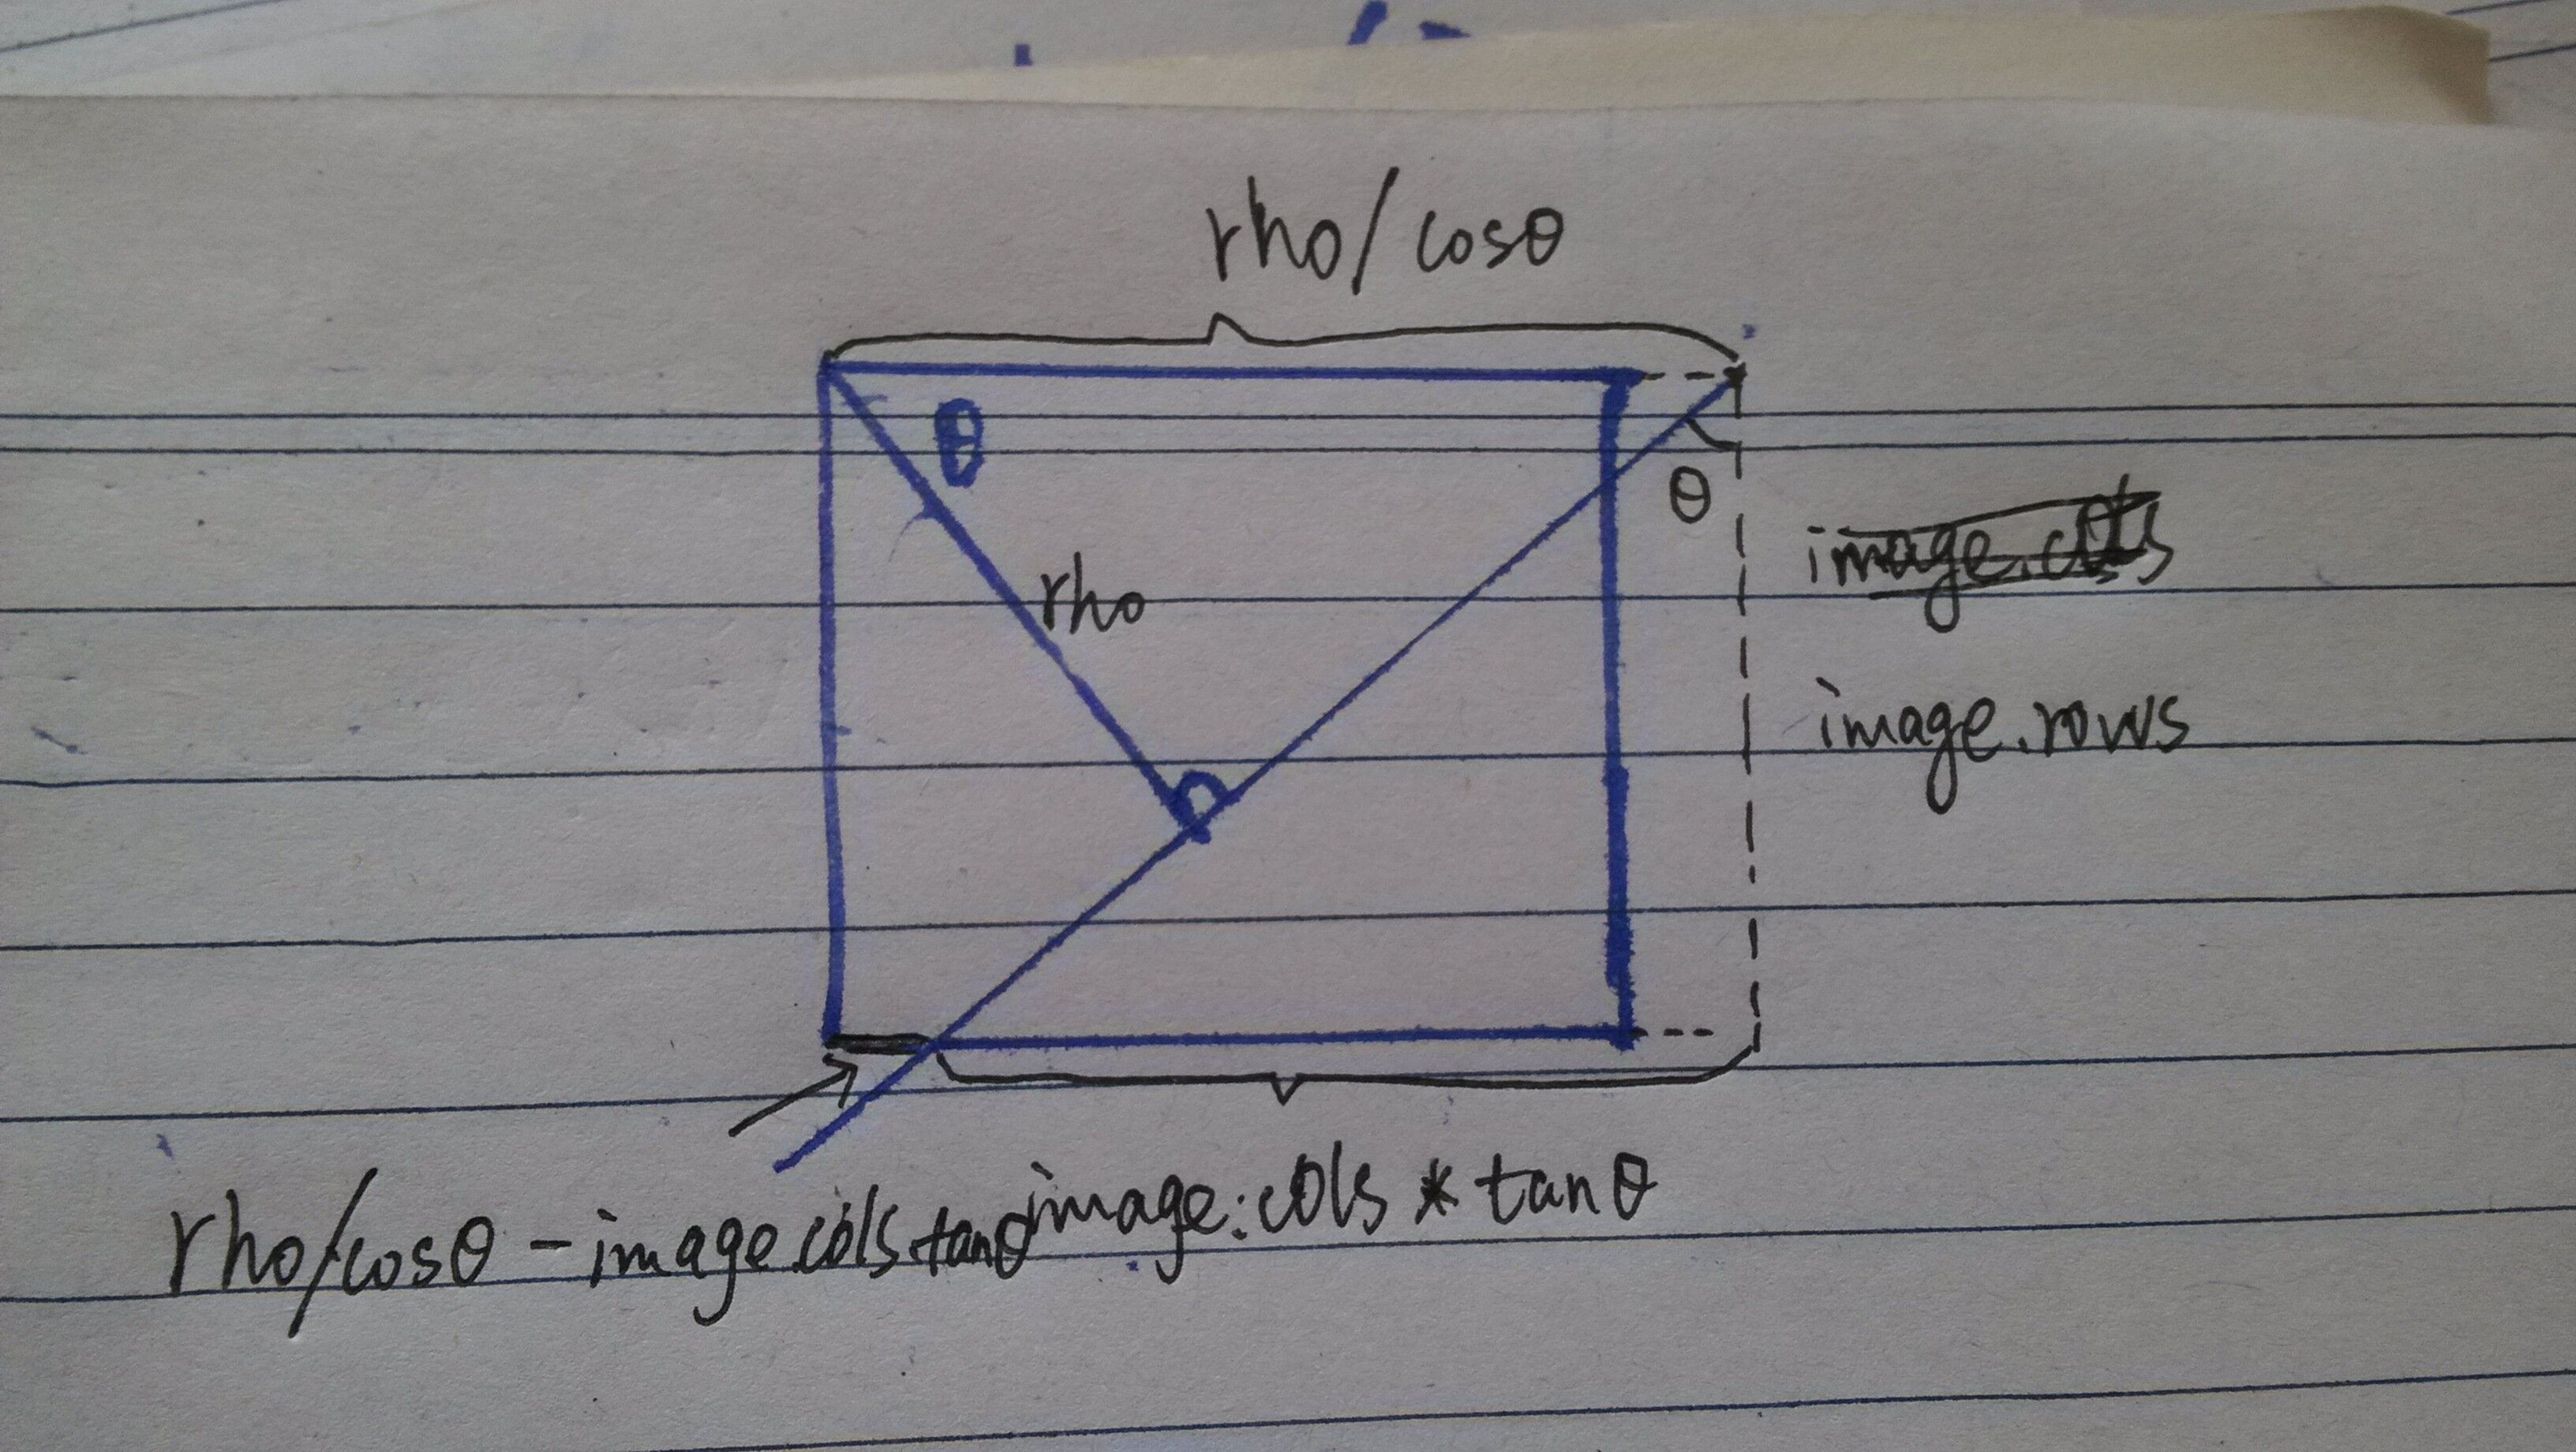 rho/cosθ
θ
θ
rho
image.cols
image.rows
rho/cosθ - image.cols.tanθ
image.cols * tanθ